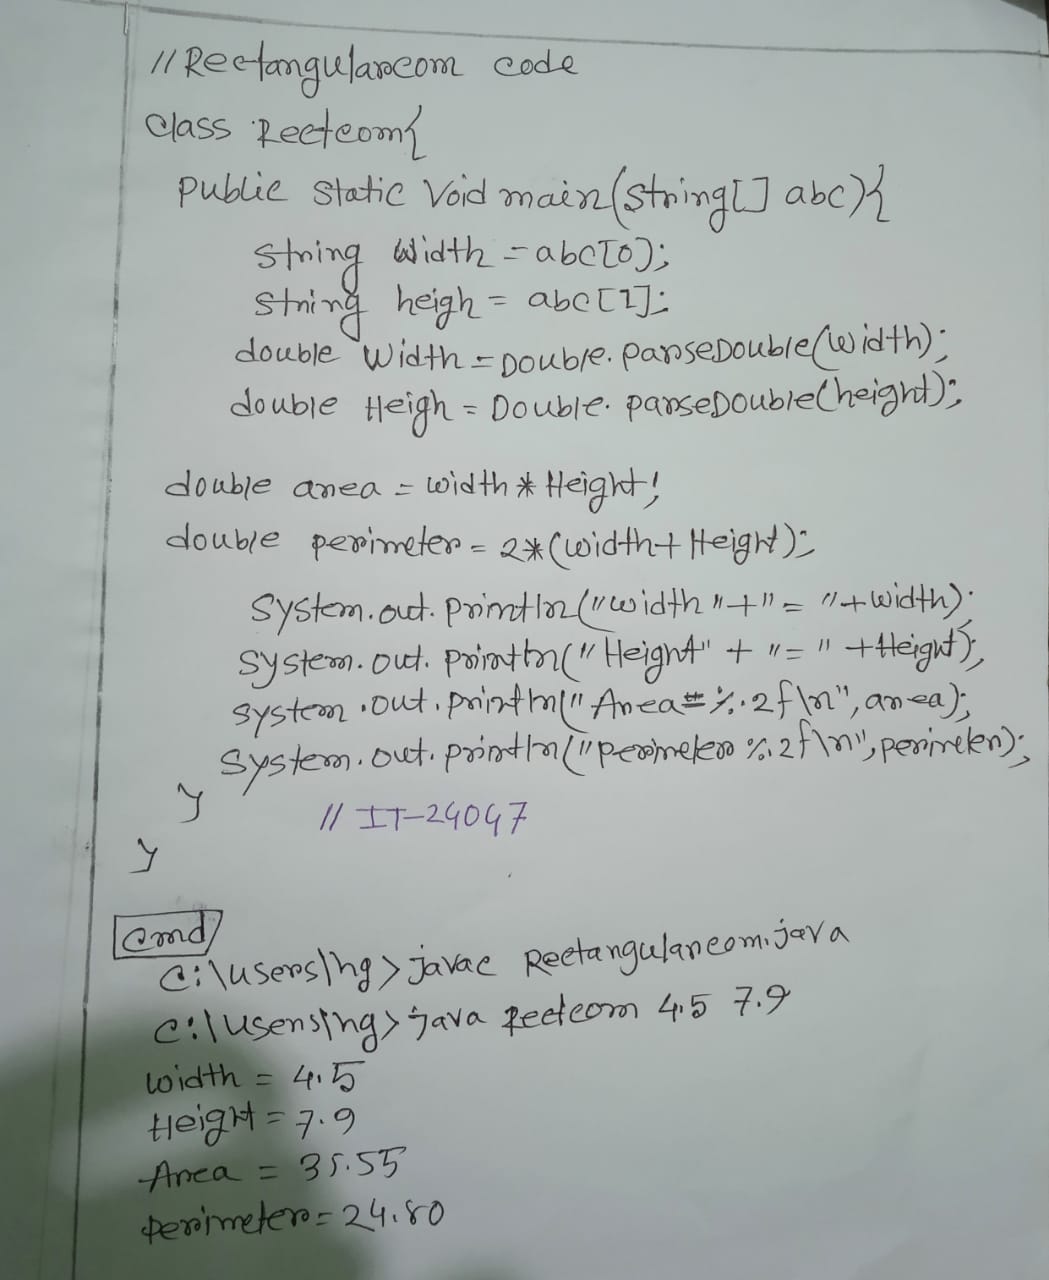 // Rectangularcom code
class Rectcom{
public static void main(String[] abc){
String width = abc[0];
String heigh = abc[1];
double Width = Double.parseDouble(width);
double Heigh = Double.parseDouble(height);
double area = width * Height;
double perimeter = 2*(width+Height);
System.out.println("width"+" = "+width);
System.out.println("Height" + "=" +Height);
System.out.println("Area=%.2f\n", area);
System.out.println("perimeter %.2f\n", perimeter);
}
// IT-24047
}
cmd
C:\users\hg>javac Rectangularcom.java
C:\users\hg>java Rectcom 4.5 7.9
width = 4.5
Height = 7.9
Area = 35.55
perimeter = 24.80